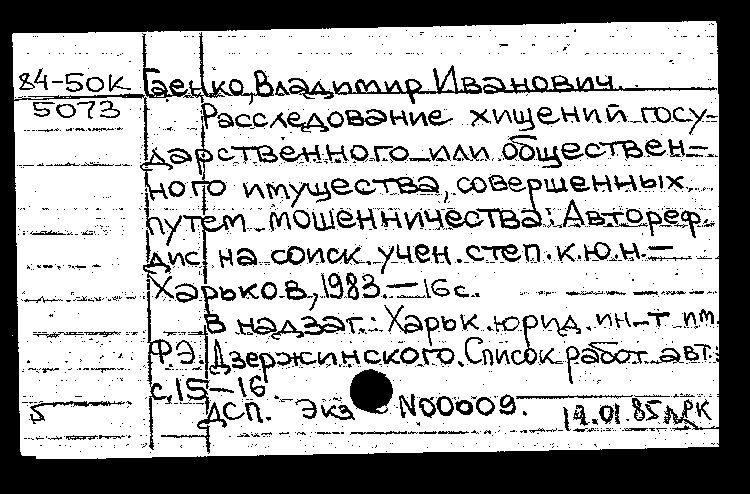 84-50К Гаенко, Владимир Иванович.
5073 Расследование хищений госу-
дарственного или обществен-
ного имущества, совершенных
путем мошенничества: Автореф.
дис. на соиск. учен. степ. к.ю.н. —
Харьков, 1983. — 16 с.
В надзаг.: Харьк. юрид. ин-т им.
Ф.Э. Дзержинского. Список работ авт.:
с. 15-16.
5 ДСП. Экз N00009. 14.01.85